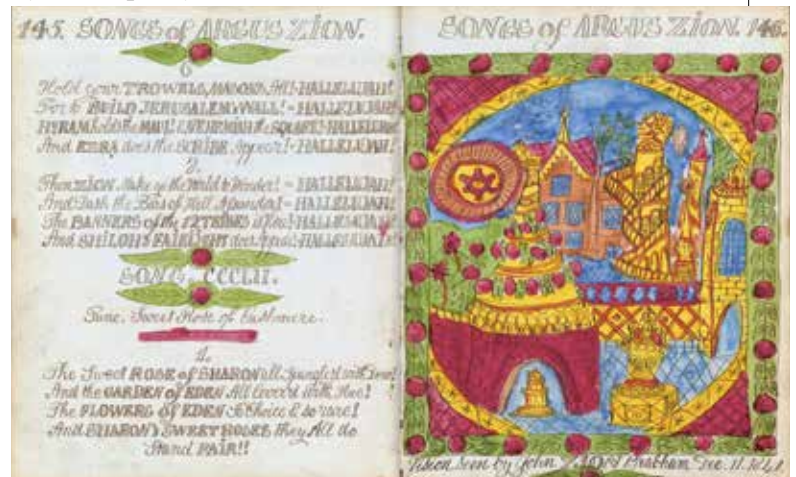 145. SONGS of ARGUS ZION.
6
Hold your TROWELS, MASONS, All!-HALLELUJAH!
For to BUILD JERUSALEM'S WALL!-HALLELUJAH!
HYRAM holds the MAUL! & NEHEMIAH the SQUARE!-HALLELUJAH!
And EZRA does the SCRIBE Appear!-HALLELUJAH!
7.
Then ZION the World to Wonder!-HALLELUJAH!
And the of Hell Asunder!-HALLELUJAH!
The BANNERS of the 12 TRIBES HALLELUJAH!
And SHILOH'S does HALLELUJAH!
SONG CCCLII.
Tune, Sweet Rose of Cashmere.
1.
The Sweet ROSE of SHARON all Spangled with
And the GARDEN of EDEN All Cover'd with
The FLOWERS of EDEN So Choice & so rare!
And SHARON'S SWEET ROSES They All do
Stand FAIR!!
SONGS of ARGUS ZION. 146.
Vision Seen by John Dec. 11.